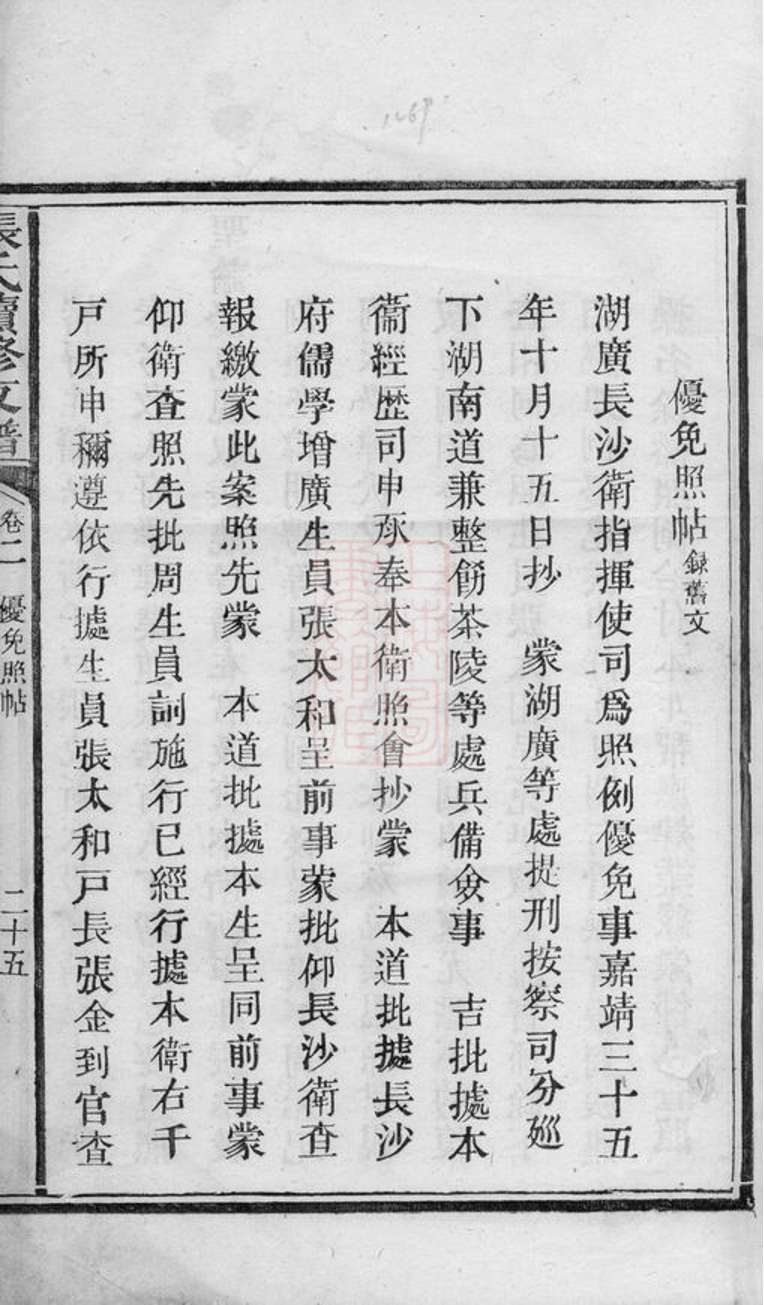 優免照帖 録舊文
湖廣長沙衛指揮使司爲照例優免事嘉靖三十五
年十月十五日抄　蒙湖廣等處提刑按察司分廵
下湖南道兼整飭茶陵等處兵備僉事　吉批據本
衞經歴司申承奉本衛照會抄蒙　本道批據長沙
府儒學增廣生員張太和呈前事蒙批仰長沙衛查
報繳蒙此案照先蒙　本道批據本生呈同前事蒙
仰衛查照先批周生員訓施行已經行據本衛右千
戸所申稱遵依行據生員張太和戸長張金到官查
張氏續修支譜
卷二
優免照帖
二十五